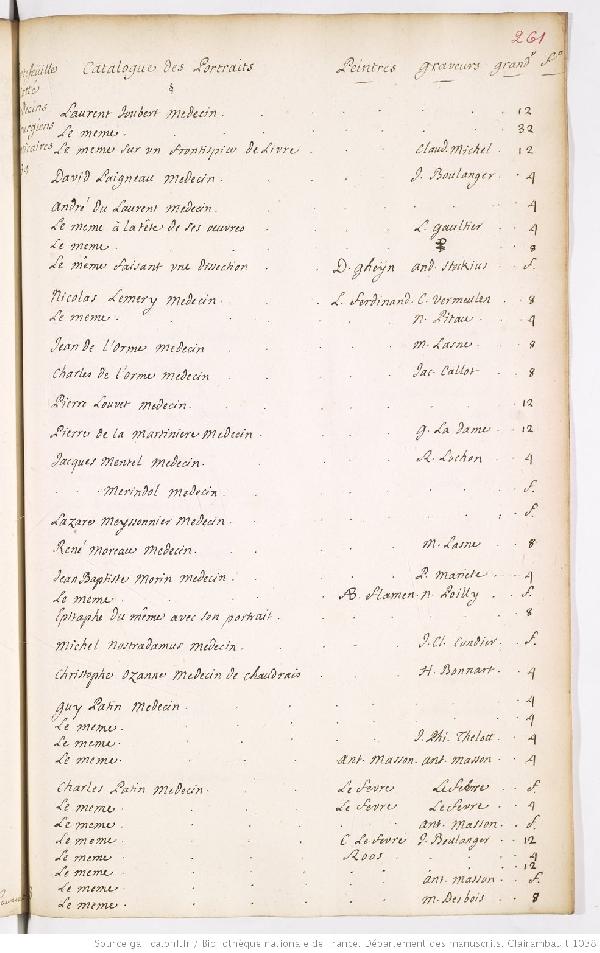 261
Catalogue des Portraits Peintres graveurs grandr. fo.
Laurent Joubert medecin 12
Le meme 32
Le meme sur vn frontispice de Livre Claud. Michel 12
David Laigneau medecin J. Boulanger 4
André du Laurent medecin 4
Le meme à la tête de ses oeuvres L. gaultier 4
Le meme 8
Le même faisant vne dissection D. gheyn and. stokius f.
Nicolas Lemery medecin L. Ferdinand C. Vermeulen 8
Le meme N. Pitau 4
Jean de l'orme medecin m. Lasne 8
Charles de l'orme medecin Jac. Callot 8
Pierre Louvet medecin 12
Pierre de la martiniere medecin g. La dame 12
Jacques mentel medecin R. Lochon 4
merindol medecin f.
Lazare meyssonnier medecin f.
René moreau medecin m. Lasne 8
Jean Baptiste morin medecin P. mariete 4
Le meme AB. flamen n. Poilly f.
Epitaphe du même avec son portrait 8
michel nostradamus medecin J. Cl. Cundier f.
Christophe ozanne medecin de chaudrais H. Bonnart 4
guy Patin medecin 4
Le meme 4
Le meme J. Phi. Thelott 4
Le meme Ant. Masson ant. masson 4
Charles Patin medecin Le fevre Le febvre f.
Le meme Le fevre Le fevre 4
Le meme ant. masson f.
Le meme C. Le fevre J. Boulanger 12
Le meme Roos 4
Le meme 12
Le meme ant. masson f.
Le meme m. Desbois 8
Source gallica.bnf.fr / Bibliothèque nationale de France. Département des manuscrits. Clairambault 1038